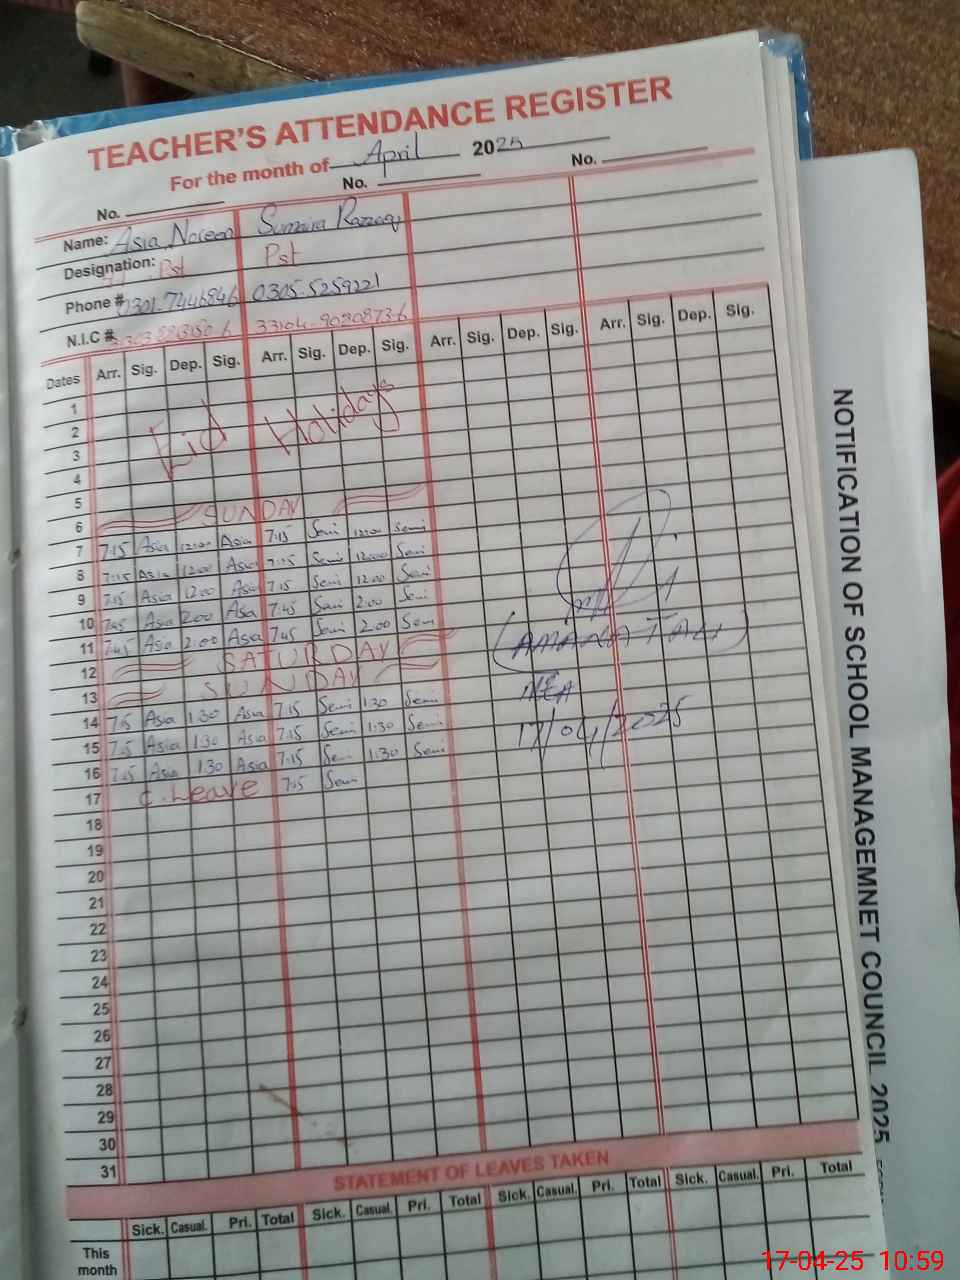 TEACHER'S ATTENDANCE REGISTER
For the month of April 2025
No. No. No.
Name: Asia Noreen Sumaira Razzaq
Designation: Pst Pst
Phone # 0301-7446846 0305-5259221
N.I.C #. 33104-9030873-6
Dates Arr. Sig. Dep. Sig. Arr. Sig. Dep. Sig. Arr. Sig. Dep. Sig. Arr. Sig. Dep. Sig.
1
2 Eid Holidays
3
4
5
6 SUNDAY
7 7:15 Asia 12:00 Asia 7:15 Semi 12:00 Semi
8 7:15 Asia 12:00 Asia 7:15 Semi 12:00 Semi
9 7:15 Asia 12:00 Asia 7:15 Semi 12:00 Semi
10 7:45 Asia 2:00 Asia 7:45 Semi 2:00 Semi
11 7:45 Asia 2:00 Asia 7:45 Semi 2:00 Semi
(AMANAT ALI)
12 SATURDAY
13 SUNDAY
14 7:15 Asia 1:30 Asia 7:15 Semi 1:30 Semi
17/04/2025
15 7:15 Asia 1:30 Asia 7:15 Semi 1:30 Semi
16 7:15 Asia 1:30 Asia 7:15 Semi 1:30 Semi
17 C. Leave 7:15 Semi
18
19
20
21
22
23
24
25
26
27
28
29
30
31
STATEMENT OF LEAVES TAKEN
Sick. Casual. Pri. Total Sick. Casual. Pri. Total Sick. Casual. Pri. Total Sick. Casual. Pri. Total
This
month
NOTIFICATION OF SCHOOL MANAGEMNET COUNCIL 2025
17-04-25 10:59